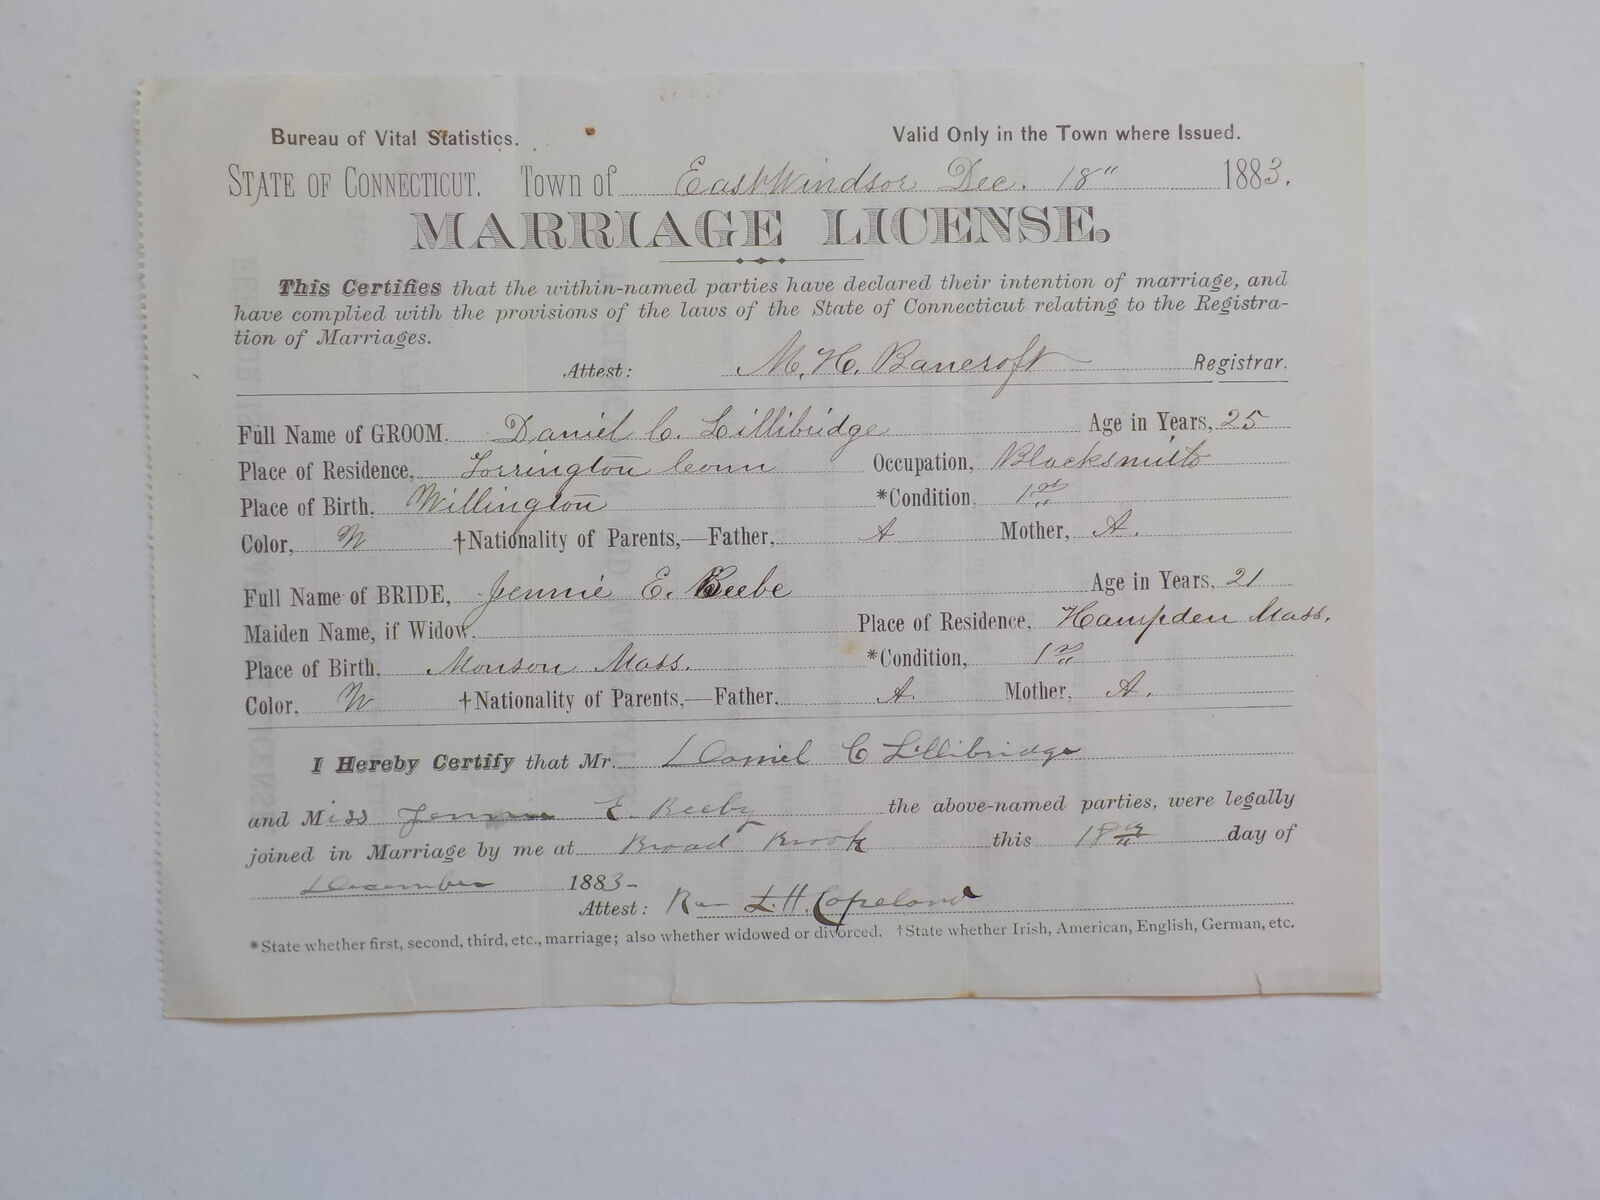 Bureau of Vital Statistics. Valid Only in the Town where Issued.
STATE OF CONNECTICUT. Town of East Windsor Dec. 18" 1883.
MARRIAGE LICENSE.
This Certifies that the within-named parties have declared their intention of marriage, and
have complied with the provisions of the laws of the State of Connecticut relating to the Registra-
tion of Marriages.
Attest: M. H. Bancroft Registrar.
Full Name of GROOM. Daniel C. Lillibridge Age in Years, 25
Place of Residence, Torrington Conn Occupation, Blacksmith
Place of Birth, Willington *Condition, 1st
Color, W †Nationality of Parents,—Father, A Mother, A.
Full Name of BRIDE, Jennie E. Beebe Age in Years, 21
Maiden Name, if Widow, Place of Residence, Hampden Mass.
Place of Birth, Monson Mass. *Condition, 1st
Color, W †Nationality of Parents,—Father, A. Mother, A.
I Hereby Certify that Mr. Daniel C Lillibridge
and Miss Jennie E. Beebe the above-named parties, were legally
joined in Marriage by me at Broad Brook this 18th day of
December 1883-
Attest: Rev L. H. Copeland
*State whether first, second, third, etc., marriage; also whether widowed or divorced. †State whether Irish, American, English, German, etc.